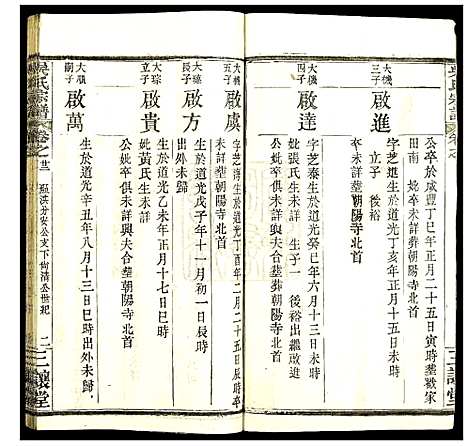 吳氏宗譜
公卒於咸豐丁巳年正月二十五日寅時塟戴家
田南 妣卒未詳葬朝陽寺北首
大機三子 啟進 字芝進生於道光丁亥年正月十五日未時
立子 後裕
卒未詳塟朝陽寺北首
大機四子 啟達 字芝泰生於道光癸巳年六月十三日未時
妣張氏生未詳 生子一 後裕出繼啟進
公妣卒俱未詳與夫合塟葬朝陽寺北首
大機五子 啟虞 字芝海生於道光丁酉年二月五日辰時卒
未詳塟朝陽寺北首
大璲長子 啟方 生於道光戊子年十一月初一日辰時
出外未歸
大琮次子 啟貴 生於道光乙未年正月十七日巳時
妣黃氏生未詳
公妣卒俱未詳與夫合塟朝陽寺北首
大順 啟萬 生於道光辛丑年八月十三日巳時出外未歸
吳氏宗譜 卷之廿二 公支下尚清公世紀 二 三讓堂